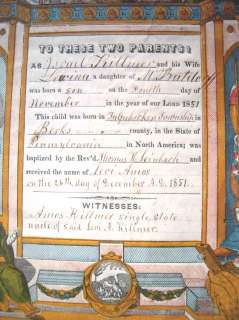 TO THESE TWO PARENTS:
As Israel Fillmer and his Wife
Lovina a daughter of M.
was born a son on the Tenth day of
November in the year of our Loan 1851
This child was born in Tulpehocken Township in
Berks county, in the State of
Pennsylvania in North America; was
baptized by the Rev'd. Thomas H. Leinbach and
received the name of Levi Amos
on the 26th day of December A.D. 1851.
WITNESSES:
Amos Killmer single, state
made of said Levi A. Killmer.